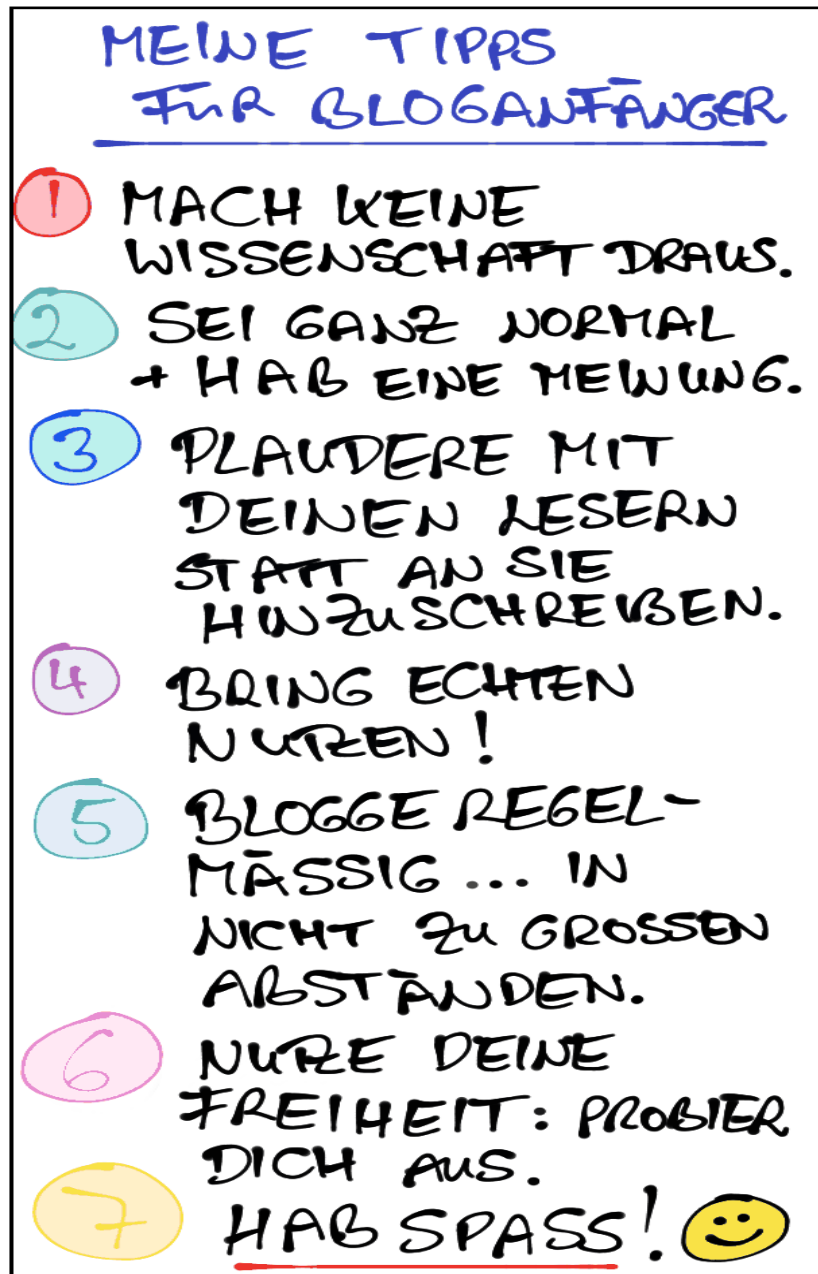 MEINE TIPPS
FÜR BLOGANFÄNGER
1 MACH KEINE
WISSENSCHAFT DRAUS.
2 SEI GANZ NORMAL
+ HAB EINE MEINUNG.
3 PLAUDERE MIT
DEINEN LESERN
STATT AN SIE
HINZUSCHREIBEN.
4 BRING ECHTEN
NUTZEN!
5 BLOGGE REGEL-
MÄSSIG ... IN
NICHT ZU GROSSEN
ABSTÄNDEN.
6 NUTZE DEINE
FREIHEIT: PROBIER
DICH AUS.
7 HAB SPASS!